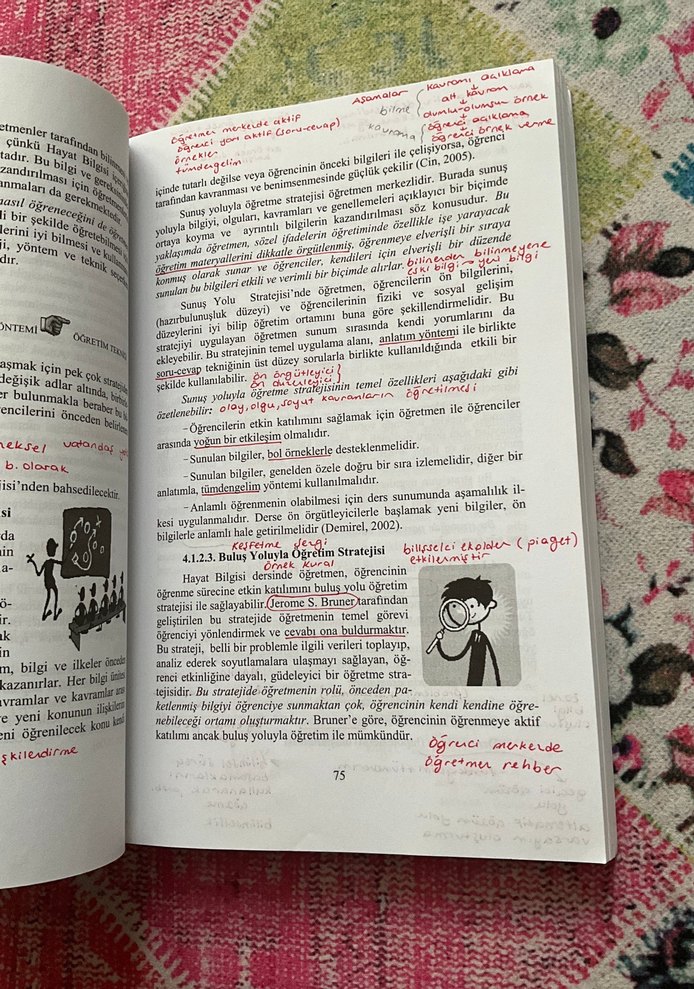 etmenler tarafından bilinme
çünkü Hayat Bilgisi içe
tadır. Bu bilgi ve gerek
azandırılması için öğretmen
anmaları da gerekmektedir.
nasıl öğreneceğini de öğre
li bir şekilde öğretebilme
lerini iyi bilmesi ve kulla
ji, yöntem ve teknik seçe
dır.
ÖNTEMİ
ÖĞRETİM TEKNİ
aşmak için pek çok strateji
değişik adlar altında, birbi
er bulunmakla beraber bu
encilerini önceden belirlen
neksel vatandaş
b. olarak
jisi'nden bahsedilecektir.
isi
rda
nin
a-
ö-
ir.
ak
in
m, bilgi ve ilkeler önceden
kazanırlar. Her bilgi ünites
avramlar ve kavramlar aras
e yeni konunun ilişkilerin
eni öğrenilecek konu kend
şkilendirme
Öğretmen merkezde aktif
öğrenci yarı aktif (soru-cevap)
örnekler
tümdengelim
Aşamalar
bilme
kavrama
kavramı açıklama
alt kavram
olumlu-olumsuz örnek
öğrenci açıklama
öğrenci örnek verme
içinde tutarlı değilse veya öğrencinin önceki bilgileri ile çelişiyorsa, öğrenci
tarafından kavranması ve benimsenmesinde güçlük çekilir (Cin, 2005).
Sunuş yoluyla öğretme stratejisi öğretmen merkezlidir. Burada sunuş
yoluyla bilgiyi, olguları, kavramları ve genellemeleri açıklayıcı bir biçimde
ortaya koyma ve ayrıntılı bilgilerin kazandırılması söz konusudur. Bu
yaklaşımda öğretmen, sözel ifadelerin öğretiminde özellikle işe yarayacak
öğretim materyallerini dikkatle örgütlenmiş, öğrenmeye elverişli bir sıraya
konmuş olarak sunar ve öğrenciler, kendileri için elverişli bir düzende
sunulan bu bilgileri etkili ve verimli bir biçimde alırlar. bilinenden bilinmeyene
eski bilgi → yeni bilgi
Sunuş Yolu Stratejisi'nde öğretmen, öğrencilerin ön bilgilerini,
(hazırbulunuşluk düzeyi) ve öğrencilerinin fiziki ve sosyal gelişim
düzeylerini iyi bilip öğretim ortamını buna göre şekillendirmelidir. Bu
stratejiyi uygulayan öğretmen sunum sırasında kendi yorumlarını da
ekleyebilir. Bu stratejinin temel uygulama alanı, anlatım yöntemi ile birlikte
soru-cevap tekniğinin üst düzey sorularla birlikte kullanıldığında etkili bir
şekilde kullanılabilir. ön örgütleyici
ön düzenleyici
Sunuş yoluyla öğretme stratejisinin temel özellikleri aşağıdaki gibi
özetlenebilir: olay, olgu, soyut kavramların öğretilmesi
–Öğrencilerin etkin katılımını sağlamak için öğretmen ile öğrenciler
arasında yoğun bir etkileşim olmalıdır.
–Sunulan bilgiler, bol örneklerle desteklenmelidir.
–Sunulan bilgiler, genelden özele doğru bir sıra izlemelidir, diğer bir
anlatımla, tümdengelim yöntemi kullanılmalıdır.
–Anlamlı öğrenmenin olabilmesi için ders sunumunda aşamalılık il-
kesi uygulanmalıdır. Derse ön örgütleyicilerle başlamak yeni bilgiler, ön
bilgilerle anlamlı hale getirilmelidir (Demirel, 2002).
Keşfetme Sezgi
4.1.2.3. Buluş Yoluyla Öğretim Stratejisi
bilişselci ekolden (piaget)
etkilenmiştir
örnek kural
Hayat Bilgisi dersinde öğretmen, öğrencinin
öğrenme sürecine etkin katılımını buluş yolu öğretim
stratejisi ile sağlayabilir. Jerome S. Bruner tarafından
geliştirilen bu stratejide öğretmenin temel görevi
öğrenciyi yönlendirmek ve cevabı ona buldurmaktır.
Bu strateji, belli bir problemle ilgili verileri toplayıp,
analiz ederek soyutlamalara ulaşmayı sağlayan, öğ-
renci etkinliğine dayalı, güdeleyici bir öğretme stra-
tejisidir. Bu stratejide öğretmenin rolü, önceden pa-
ketlenmiş bilgiyi öğrenciye sunmaktan çok, öğrencinin kendi kendine öğre-
nebileceği ortamı oluşturmaktır. Bruner'e göre, öğrencinin öğrenmeye aktif
katılımı ancak buluş yoluyla öğretim ile mümkündür.
Öğrenci merkezde
öğretmen rehber
75